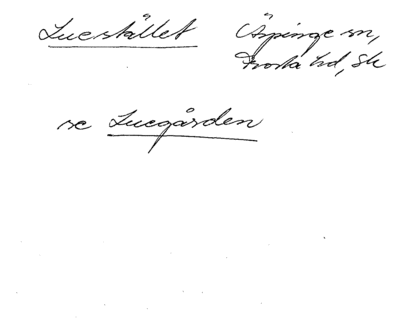 Lucstället Äspinge sn,
Frosta hd, Sk
se Lucgården